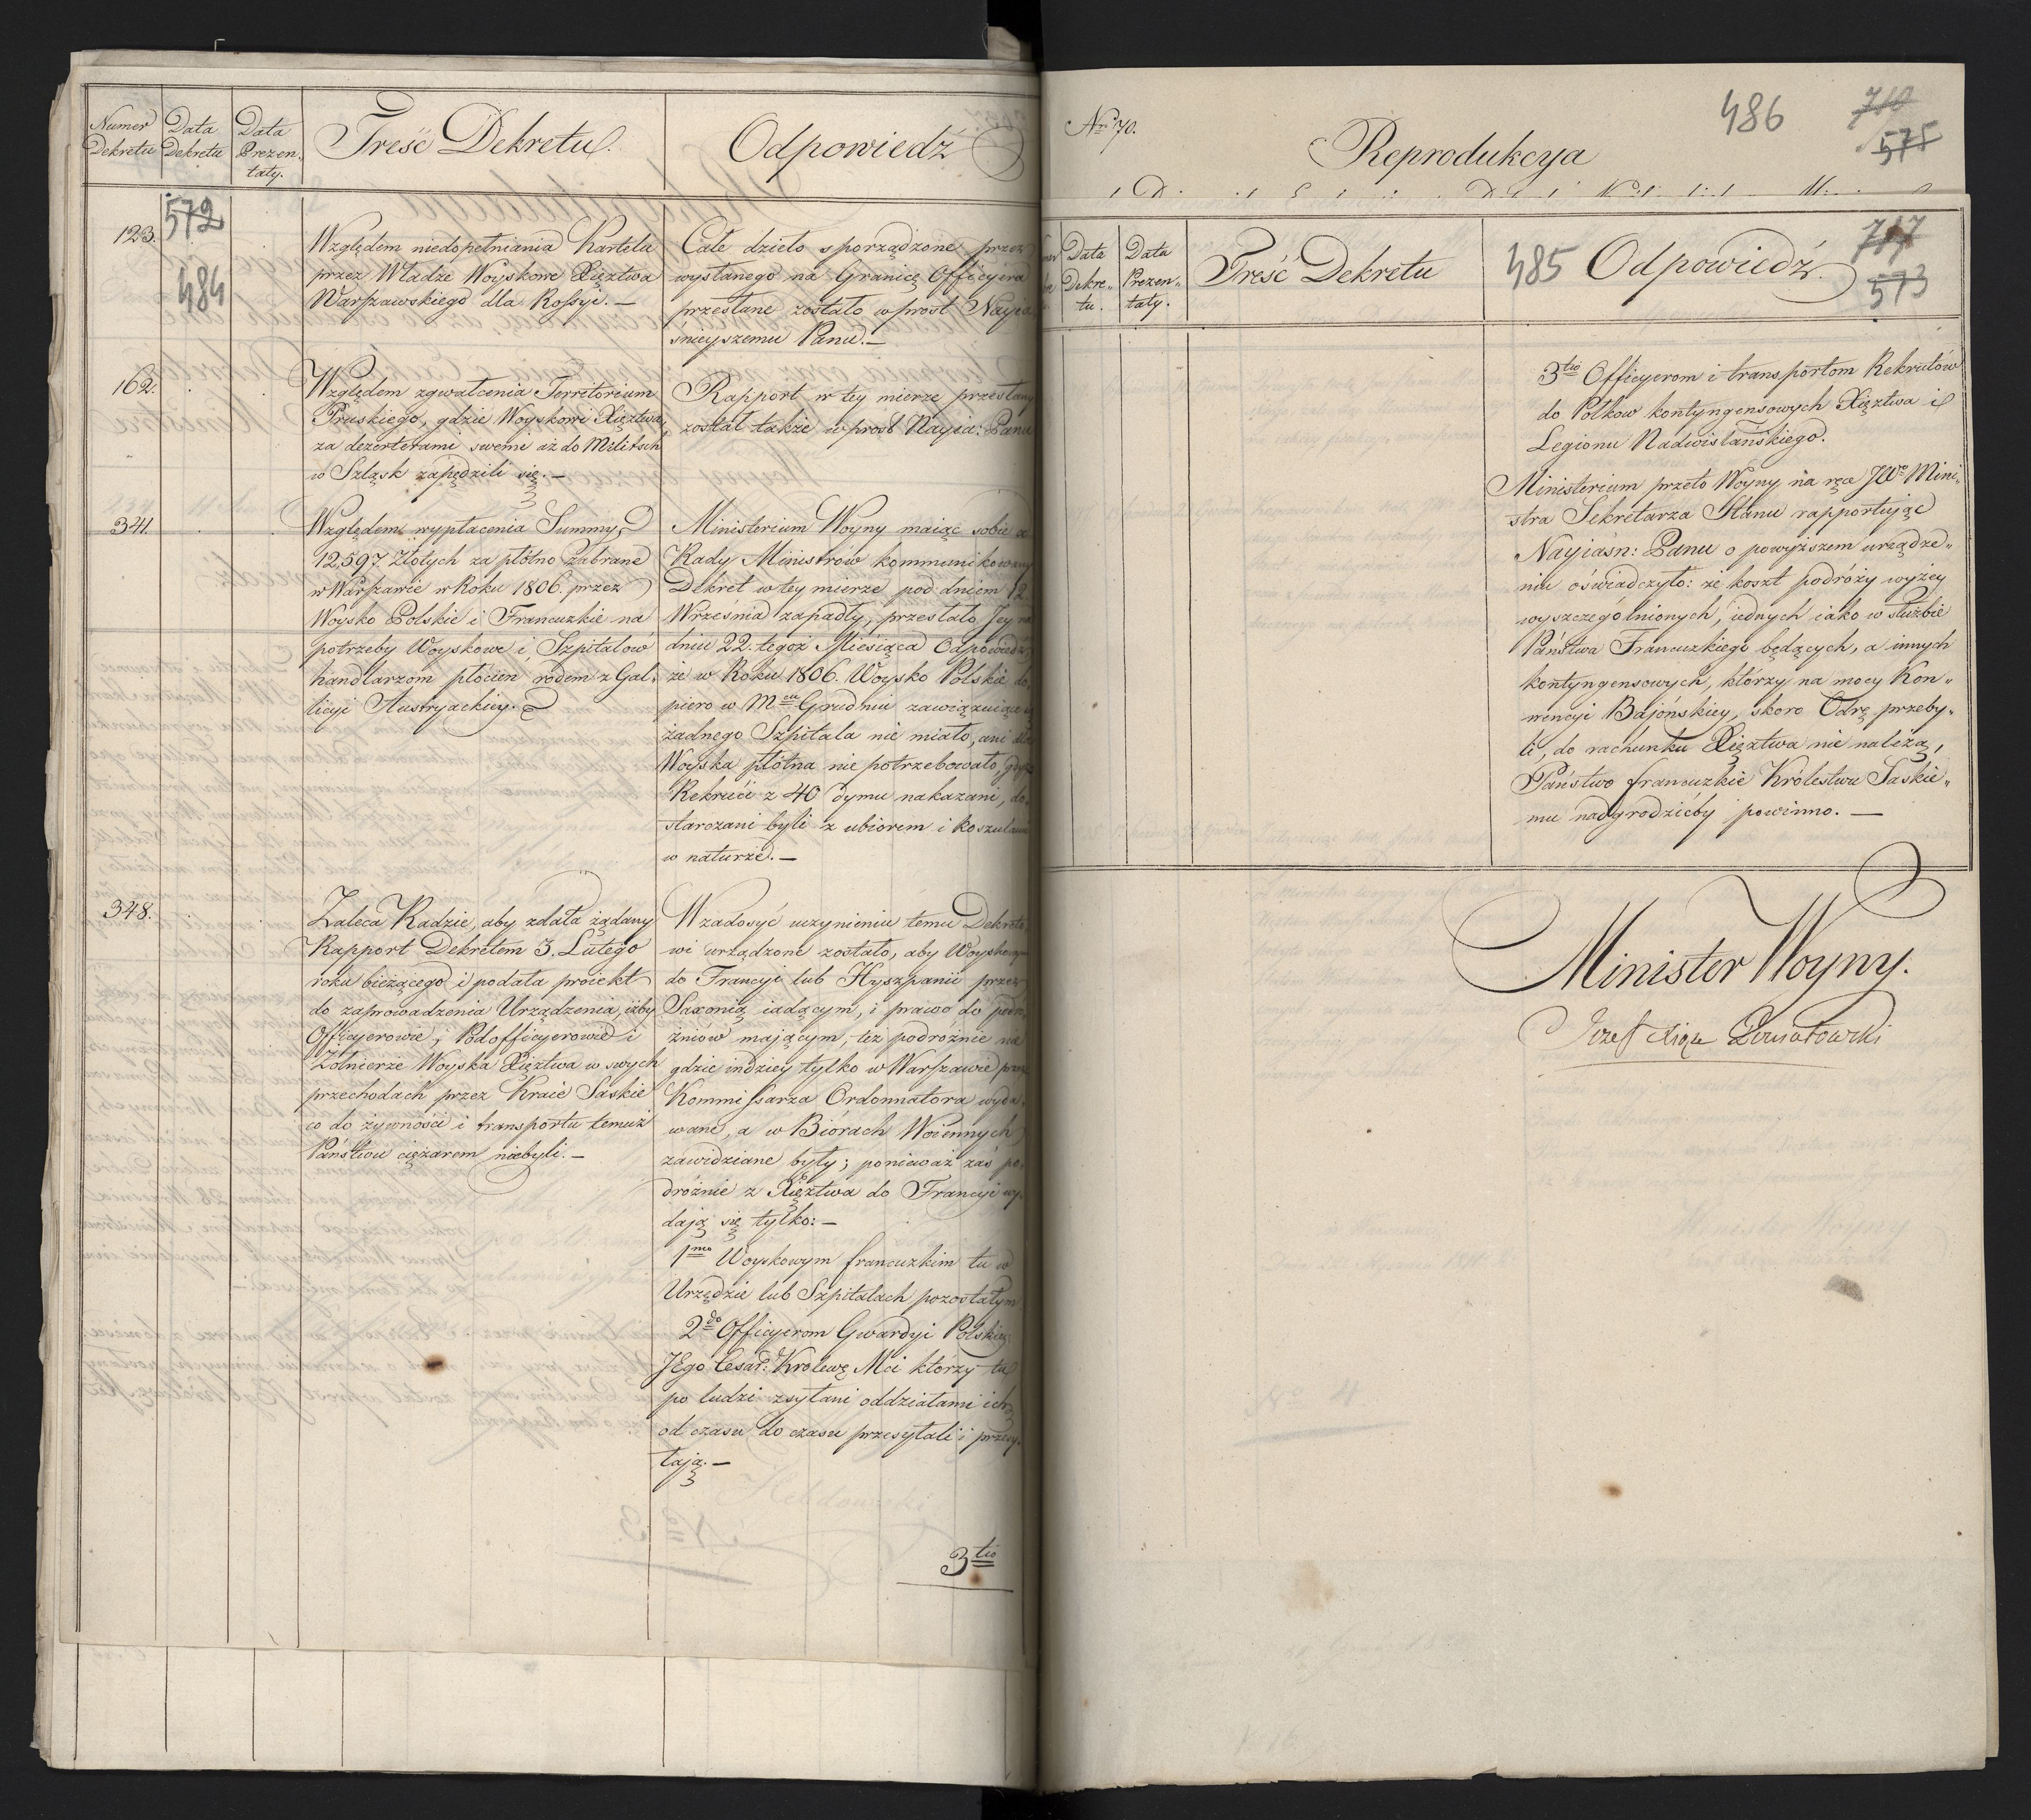 Numer Dekretu
Data Dekretu
Data Prezentaty.
Treść Dekretu.
Odpowiedź
572
484
123.
Względem niedopełniania Kartelu
przez Władze Woyskowe Xięztwa
Warszawskiego dla Rossyi. —
Całe dzieło sporządzone przez
wysłanego na Granicę Officyera
przesłane zostało wprost Nayia
śnieyszemu Panu. —
162.
Względem zgwałcenia Territorium
Pruskiego, gdzie Woyskowi Xięztwa,
za dezerterami swemi aż do Militsch
w Szląsk zapędzili się. —
Rapport w tey mierze przesłany
został także wprost Nayia: Panu
341.
Względem wypłacenia Summy
12,597 Złotych za płótno zabrane
w Warszawie w Roku 1806. przez
Woysko Polskie i Francuzkie na
potrzeby Woyskowe i Szpitalów
handlarzom płócien rodem z Gal.
licyi Austryackiey.
Ministerium Woyny maiąc sobie z
Rady Ministrów kommunikowany
Dekret w tey mierze pod dniem 12.
Września zapadły, przesłało Jey na
dniu 22. tegoż Miesiąca Odpowiedź
że w Roku 1806. Woysko Polskie do
piero w Mcu Grudniu zawiązuiące się
żadnego Szpitala nie miało, ani dla
Woyska płótna nie potrzebowało, gdyż
Rekruci z 40 dymu nakazani, do.
starczani byli z ubiorem i koszulami
w naturze. —
348.
Zaleca Radzie, aby zdała żądany
Rapport Dekretem 3. Lutego
roku bieżącego i podała proiekt
do zaprowadzenia Urządzenia, iżby
Officyerowie, Podofficyerowie i
Żołnierze Woyska Xięztwa w swych
przechodach przez Kraie Saskie
co do żywności i transportu temuż
Państwu ciężarem niebyli. —
W zadosyć uczynieniu temu Dekreto
wi urządzone zostało, aby Woyskowym
do Francyi lub Hyszpanii przez
Saxonią iadącym, i prawo do podró
żniów mającym, też podrożnie nie
gdzie indziey tylko w Warszawie przez
Kommissarza Ordonnatora wyda.
wane, a w Biórach Woiennych
zawidziane były; ponieważ zaś po,
dróżnie z Xięztwa do Francyi wy.
dają się tylko: —
1mo Woyskowym francuzkim tu w
Urzędzie lub Szpitalach pozostałym
2do Officyerom Gwardyi Polskiey
JEgo Cesar: Krolewę Mci którzy tu
po ludzi zsyłani oddziałami ich
od czasu do czasu przesyłali i przesy.
łają. —
3tio
No 70.
Reprodukcya
486
710
575
Data Dekretu.
Data Prezentaty.
Treść Dekretu
485
Odpowiedź.
717
573
3tio Officyerom i transportom Rekrutów
do Półkow kontyngensowych Xięztwa i
Legionu Nadwislańskiego.
Ministerium przeto Woyny na ręce JWo Mini„
stra Sekretarza Stanu rapportując
Nayiaśn: Panu o powyższem urządze„
niu oświadczyło: że koszt podróży wyżey
wyszczególnionych, iednych iako w służbie
Państwa Francuzkiego będących, a innych
kontyngensowych, którzy na mocy Kon„
wencyi Bajońskiey, skoro Odrę przeby„
li, do rachunku Xięztwa nie należą,
Państwo francuzkie Królestwu Saskie„
mu nadgrodzićby powinno. —
Minister Woyny.
Józef Xiąże Poniatowski